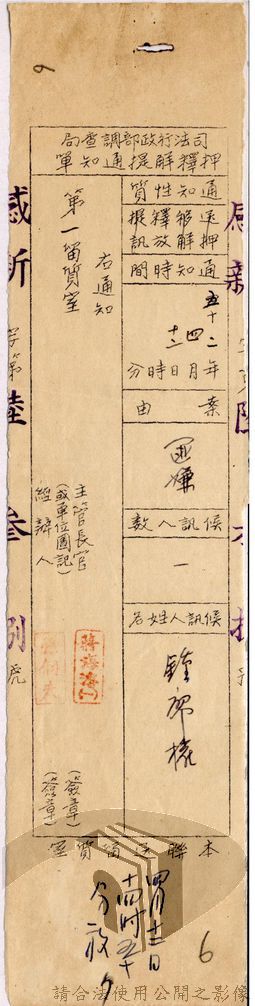 司法行政部調查局
押釋解提通知單
通知性質
還押
移解
釋放
提訊
通知時間
五十二年四月十二日
時
分
案由
匪嫌
候訊人數
一
候訊人姓名
右通知
第一留質室
主管長官
(或單位圖記)
經辦人
(簽章)
(簽章)
本聯送留質室
四月十二日
十四時五十
分
6
感新
字第
陸
參
捌
號
請合法使用公開之影像